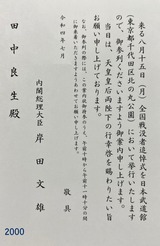 来る八月十五日（月）全国戦没者追悼式を日本武道館
（東京都千代田区北の丸公園）において挙行いたします
ので、御参列くださいますよう御案内申し上げます。
当日は、天皇皇后両陛下の行幸啓を賜わりたい旨
お願い申し上げております。
敬具
令和四年七月
内閣総理大臣 岸田文雄
田中良生殿
2000